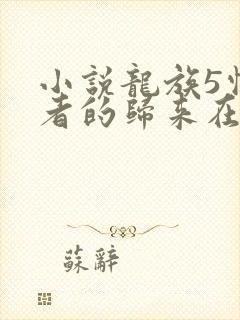 小說龍族5悼
者的歸來在
蘇辭